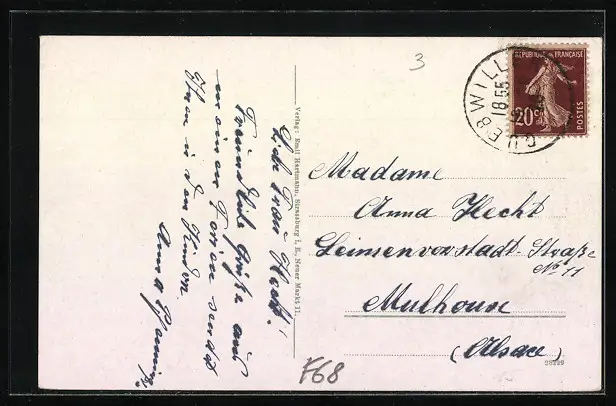 3
GUEBWILLER
18 55
RÉPUBLIQUE FRANÇAISE
20c
POSTES
Liebe Frau Hecht!
Freundliche Grüße aus
meinen Ferien sendet
Ihnen u. den Kindern
Anna
Verlag: Emil Hartmann, Strassburg i. E., Neuer Markt 11.
Madame
Anna Hecht
Leimenvorstadt-Straße
No 11
Mulhouse
(Alsace)
F68